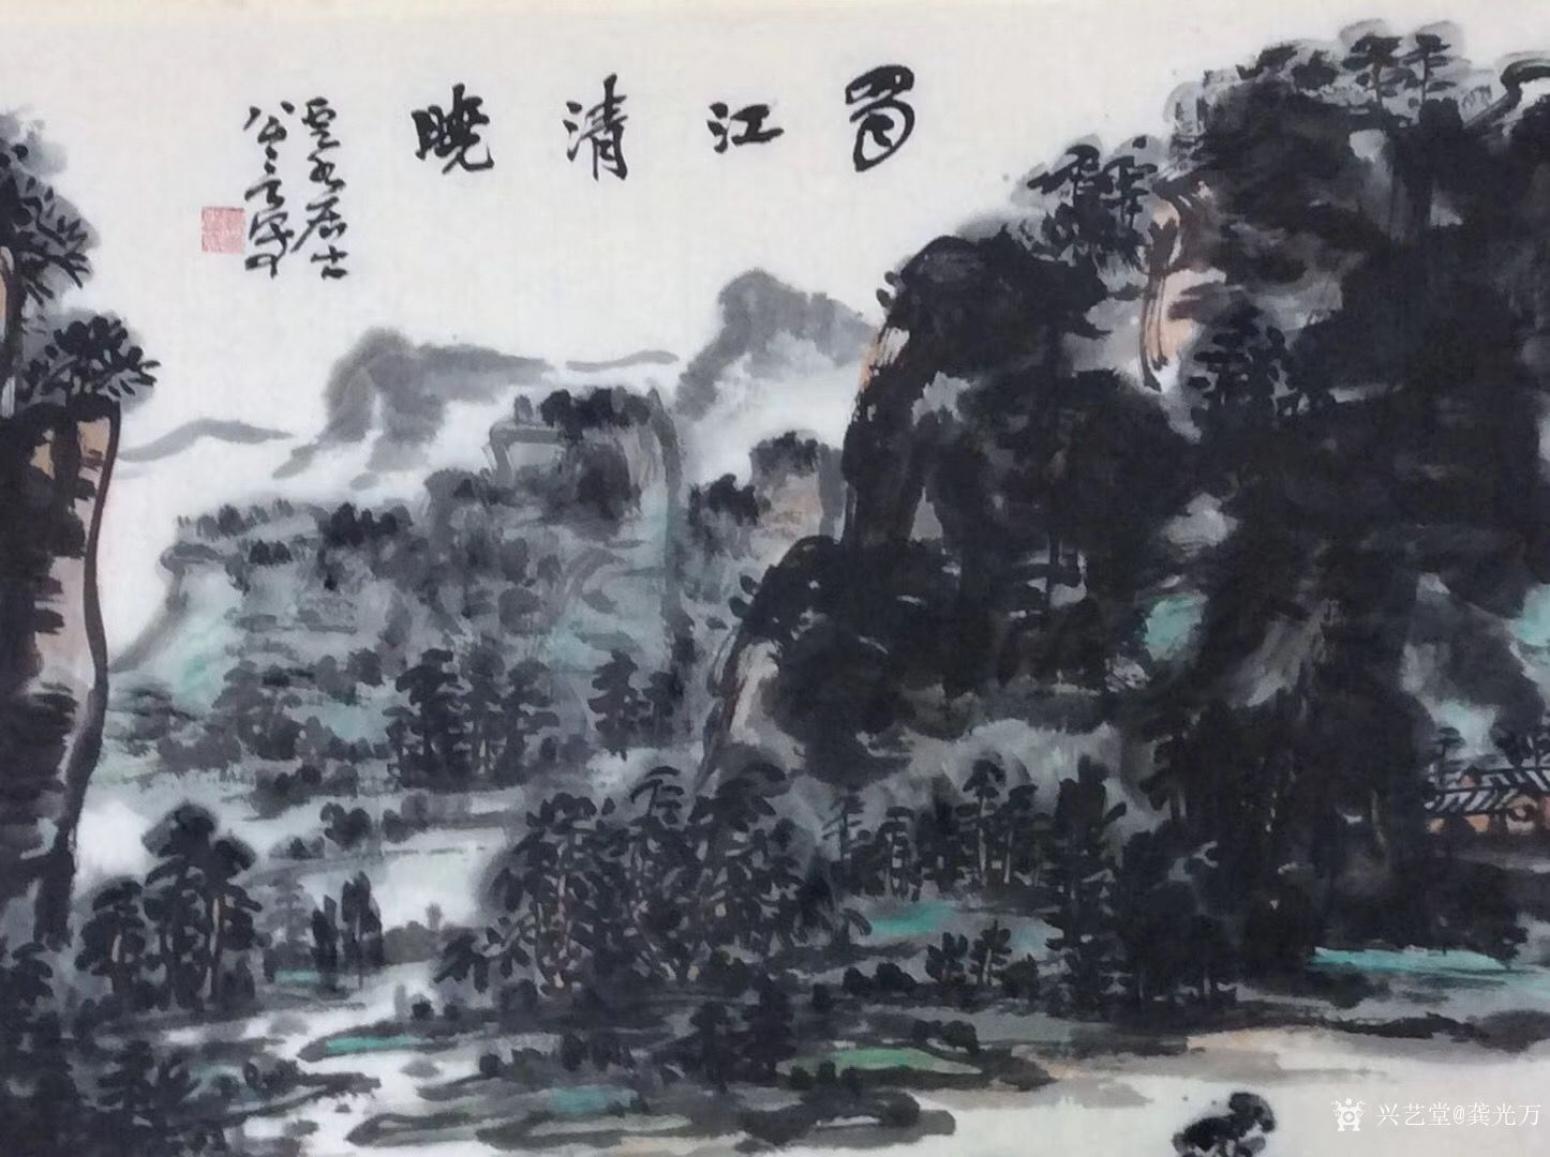 蜀江清晓
云水居士
兴艺堂@龚光万